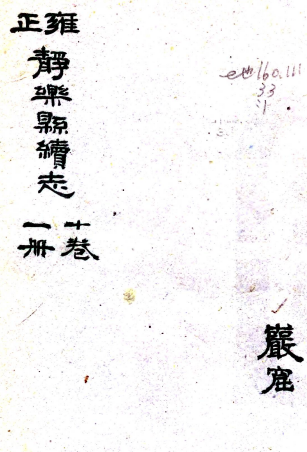 雍正
靜樂縣續志
十卷
一冊
e地160.111
33
:1
巖窟